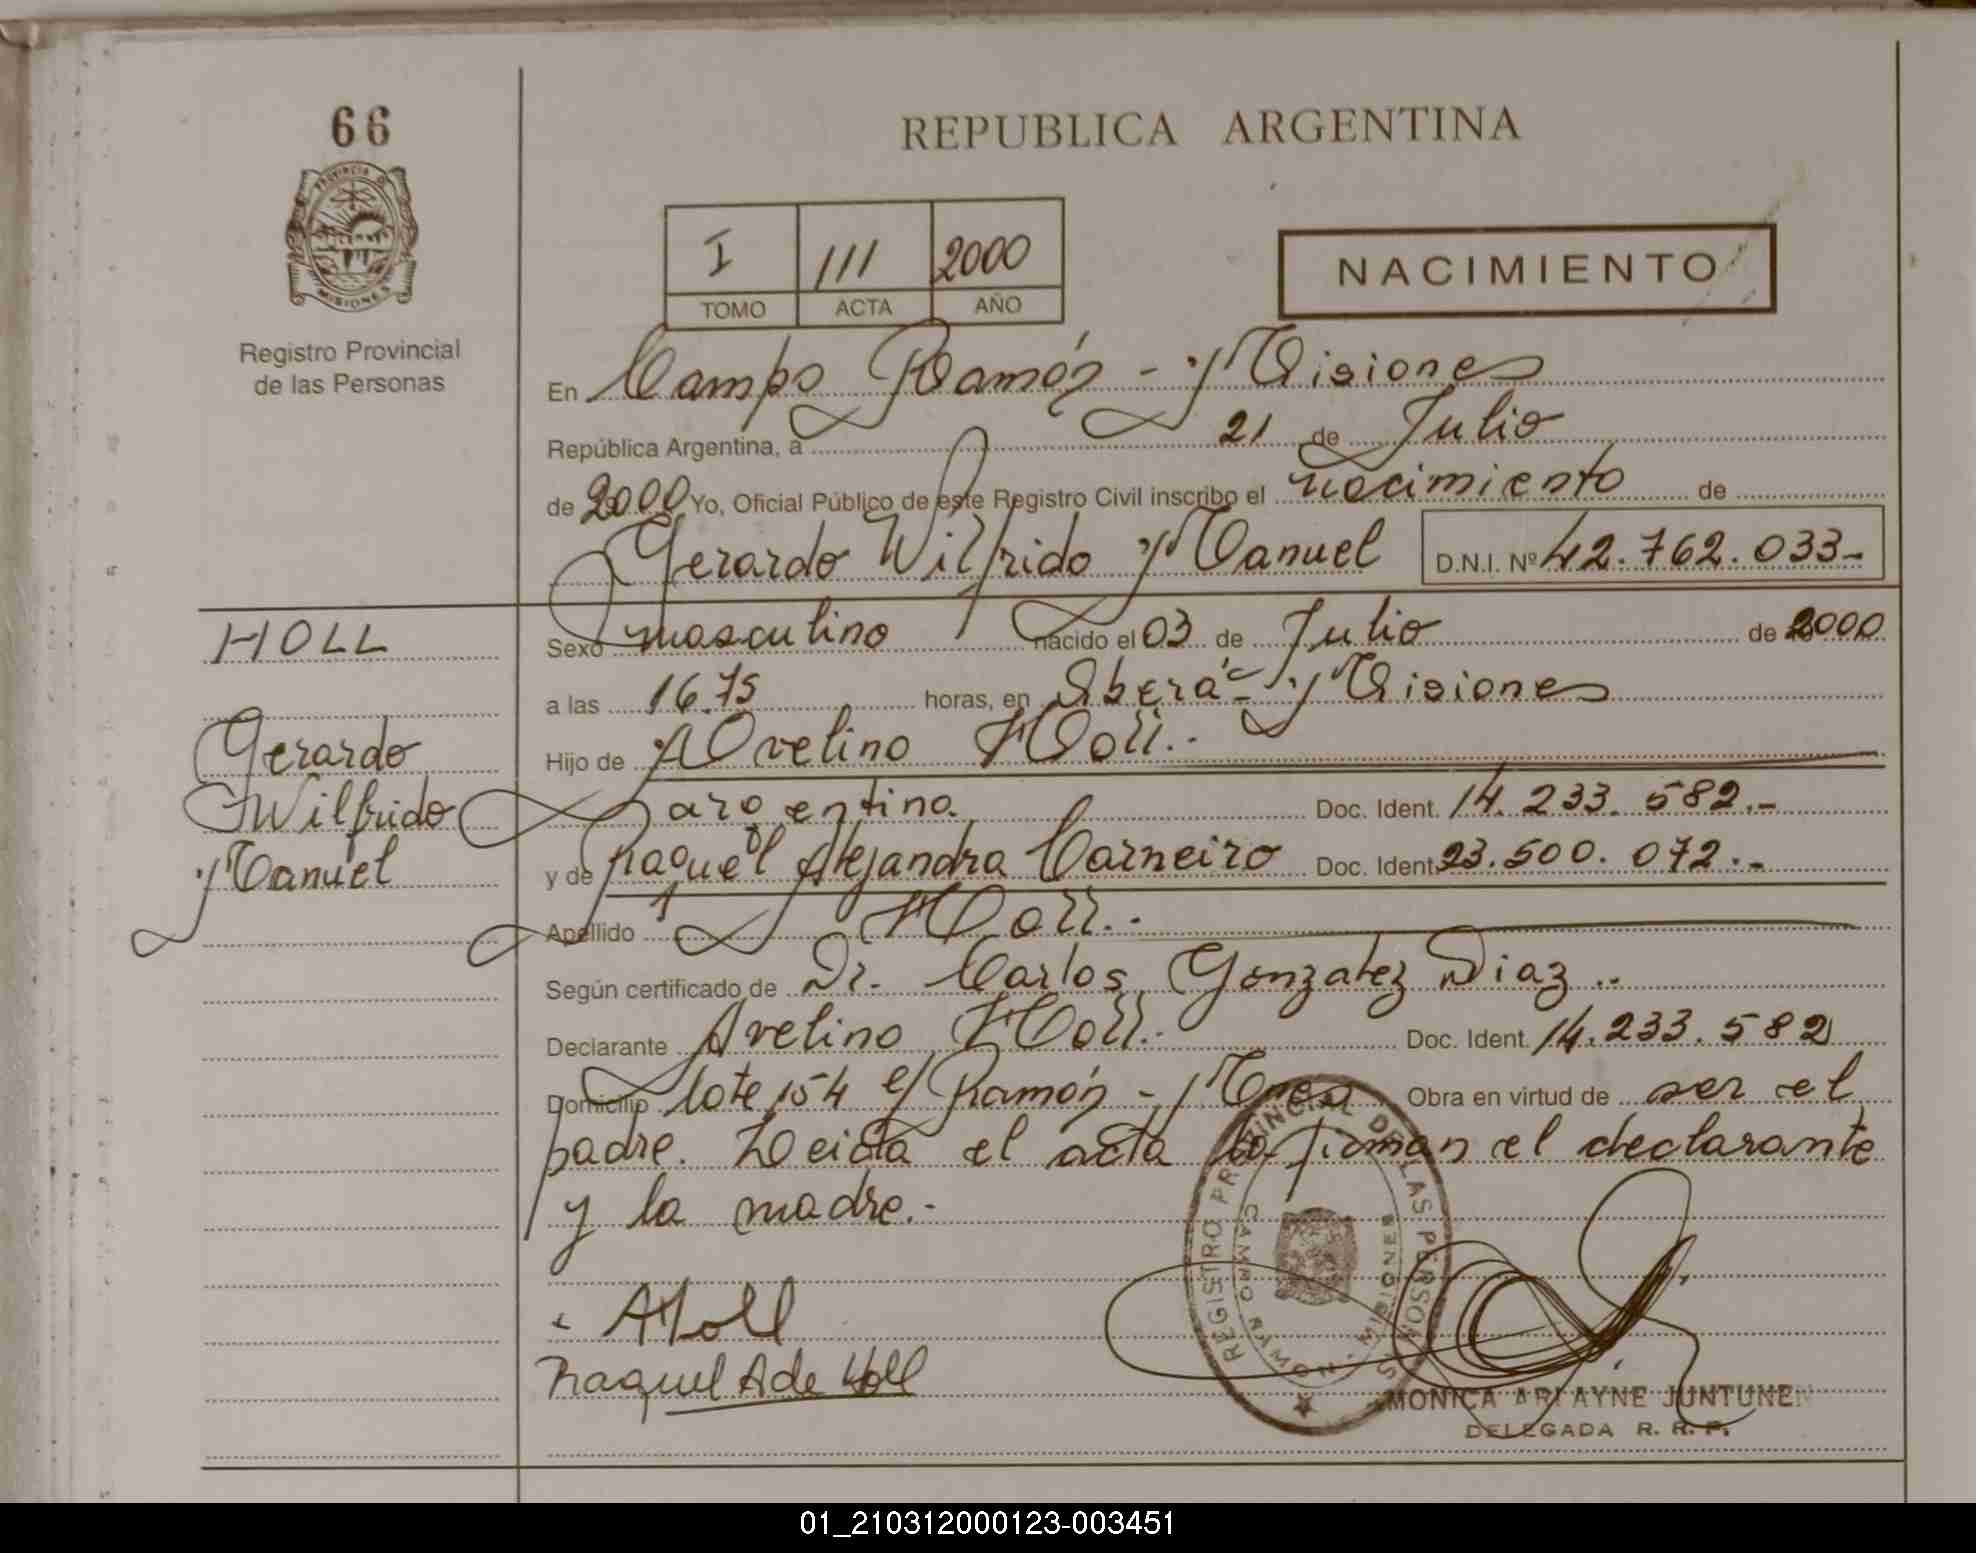 66
PROVINCIA D
MISIONES
Registro Provincial
de las Personas
REPUBLICA ARGENTINA
I 111 2000
TOMO ACTA AÑO
NACIMIENTO
En Campo Ramón - Misiones
República Argentina, a 21 de Julio
de 2000 Yo, Oficial Público de este Registro Civil inscribo el nacimiento de
Gerardo Wilfrido Manuel D.N.I. Nº 42.762.033-
HOLL
Gerardo
Wilfrido
Manuel
Sexo masculino nacido el 03 de Julio de 2000
a las 16.75 horas, en Oberá - Misiones
Hijo de Avelino Holl.-
argentino. Doc. Ident. 14.233.582.-
y de Raquel Alejandra Carneiro Doc. Ident. 23.500.072.-
Apellido Holl.-
Según certificado de Dr. Carlos Gonzalez Diaz..
Declarante Avelino Holl.- Doc. Ident. 14.233.582
Domicilio lote 154 c/ Ramón - Mnes Obra en virtud de ser el
padre. Leida el acta la firman el declarante
y la madre.-
AHoll
Raquel A de Holl
REGISTRO PROVINCIAL DE LAS PERSONAS
CAMPO RAMON - MISIONES
MONICA ARLAYNE JUNTUNEN
DELEGADA R. R. P.
01_210312000123-003451